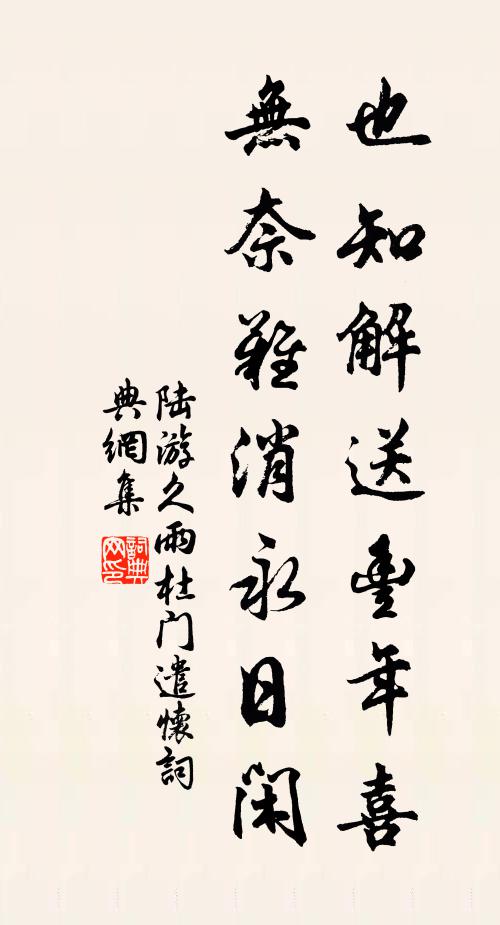 也知解送豐年喜
無奈難消永日閑
陆游久雨杜门遣懷詞
典網集
詞典网印